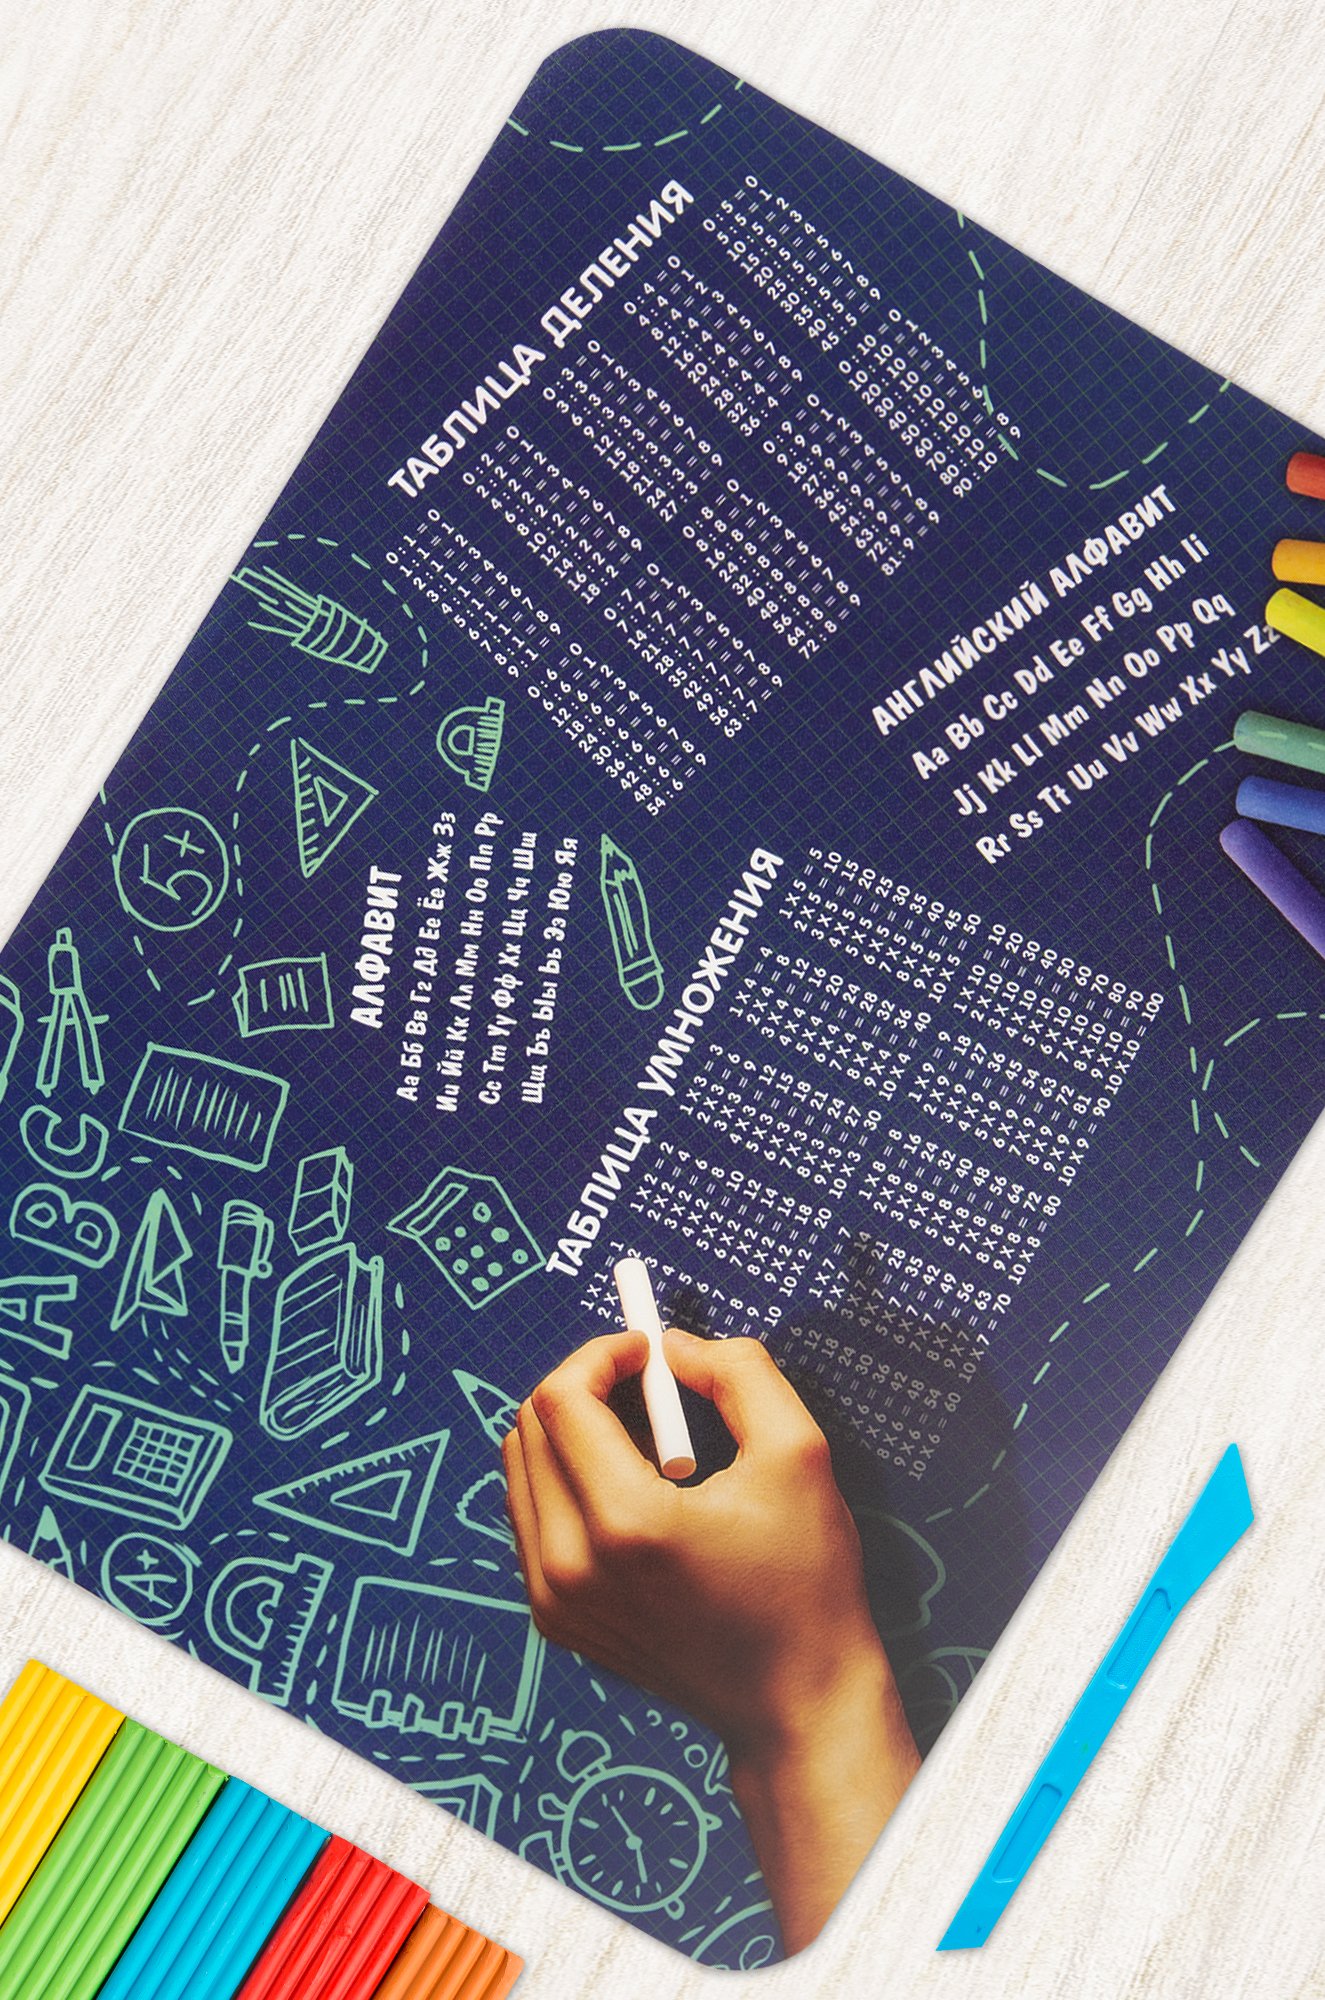 ТАБЛИЦА ДЕЛЕНИЯ
0 : 1 = 0
1 : 1 = 1
2 : 1 = 2
3 : 1 = 3
4 : 1 = 4
5 : 1 = 5
6 : 1 = 6
7 : 1 = 7
8 : 1 = 8
9 : 1 = 9
0 : 2 = 0
2 : 2 = 1
4 : 2 = 2
6 : 2 = 3
8 : 2 = 4
10 : 2 = 5
12 : 2 = 6
14 : 2 = 7
16 : 2 = 8
18 : 2 = 9
0 : 3 = 0
3 : 3 = 1
6 : 3 = 2
9 : 3 = 3
12 : 3 = 4
15 : 3 = 5
18 : 3 = 6
21 : 3 = 7
24 : 3 = 8
27 : 3 = 9
0 : 4 = 0
4 : 4 = 1
8 : 4 = 2
12 : 4 = 3
16 : 4 = 4
20 : 4 = 5
24 : 4 = 6
28 : 4 = 7
32 : 4 = 8
36 : 4 = 9
0 : 5 = 0
5 : 5 = 1
10 : 5 = 2
15 : 5 = 3
20 : 5 = 4
25 : 5 = 5
30 : 5 = 6
35 : 5 = 7
40 : 5 = 8
45 : 5 = 9
0 : 6 = 0
6 : 6 = 1
12 : 6 = 2
18 : 6 = 3
24 : 6 = 4
30 : 6 = 5
36 : 6 = 6
42 : 6 = 7
48 : 6 = 8
54 : 6 = 9
0 : 7 = 0
7 : 7 = 1
14 : 7 = 2
21 : 7 = 3
28 : 7 = 4
35 : 7 = 5
42 : 7 = 6
49 : 7 = 7
56 : 7 = 8
63 : 7 = 9
0 : 8 = 0
8 : 8 = 1
16 : 8 = 2
24 : 8 = 3
32 : 8 = 4
40 : 8 = 5
48 : 8 = 6
56 : 8 = 7
64 : 8 = 8
72 : 8 = 9
0 : 9 = 0
9 : 9 = 1
18 : 9 = 2
27 : 9 = 3
36 : 9 = 4
45 : 9 = 5
54 : 9 = 6
63 : 9 = 7
72 : 9 = 8
81 : 9 = 9
0 : 10 = 0
10 : 10 = 1
20 : 10 = 2
30 : 10 = 3
40 : 10 = 4
50 : 10 = 5
60 : 10 = 6
70 : 10 = 7
80 : 10 = 8
90 : 10 = 9
АНГЛИЙСКИЙ АЛФАВИТ
Aa Bb Cc Dd Ee Ff Gg Hh Ii
Jj Kk Ll Mm Nn Oo Pp Qq
Rr Ss Tt Uu Vv Ww Xx Yy Zz
АЛФАВИТ
Аа Бб Вв Гг Дд Ее Ёё Жж Зз
Ии Йй Кк Лл Мм Нн Оо Пп Рр
Сс Тт Уу Фф Хх Цц Чч Шш
Щщ Ъъ Ыы Ьь Ээ Юю Яя
ТАБЛИЦА УМНОЖЕНИЯ
1 X 1 = 1
2 X 2
3
4
5
= 6
= 7
= 8
= 9
= 10
1 X 2 = 2
2 X 2 = 4
3 X 2 = 6
4 X 2 = 8
5 X 2 = 10
6 X 2 = 12
7 X 2 = 14
8 X 2 = 16
9 X 2 = 18
10 X 2 = 20
1 X 3 = 3
2 X 3 = 6
3 X 3 = 9
4 X 3 = 12
5 X 3 = 15
6 X 3 = 18
7 X 3 = 21
8 X 3 = 24
9 X 3 = 27
10 X 3 = 30
1 X 4 = 4
2 X 4 = 8
3 X 4 = 12
4 X 4 = 16
5 X 4 = 20
6 X 4 = 24
7 X 4 = 28
8 X 4 = 32
9 X 4 = 36
10 X 4 = 40
1 X 5 = 5
2 X 5 = 10
3 X 5 = 15
4 X 5 = 20
5 X 5 = 25
6 X 5 = 30
7 X 5 = 35
8 X 5 = 40
9 X 5 = 45
10 X 5 = 50
= 6
= 12
= 18
= 24
= 30
= 36
7 X 6 = 42
8 X 6 = 48
9 X 6 = 54
10 X 6 = 60
1 X 7 = 7
2 X 7 = 14
3 X 7 = 21
4 X 7 = 28
5 X 7 = 35
6 X 7 = 42
7 X 7 = 49
8 X 7 = 56
9 X 7 = 63
10 X 7 = 70
1 X 8 = 8
2 X 8 = 16
3 X 8 = 24
4 X 8 = 32
5 X 8 = 40
6 X 8 = 48
7 X 8 = 56
8 X 8 = 64
9 X 8 = 72
10 X 8 = 80
1 X 9 = 9
2 X 9 = 18
3 X 9 = 27
4 X 9 = 36
5 X 9 = 45
6 X 9 = 54
7 X 9 = 63
8 X 9 = 72
9 X 9 = 81
10 X 9 = 90
1 X 10 = 10
2 X 10 = 20
3 X 10 = 30
4 X 10 = 40
5 X 10 = 50
6 X 10 = 60
7 X 10 = 70
8 X 10 = 80
9 X 10 = 90
10 X 10 = 100
5+
ABC
A+